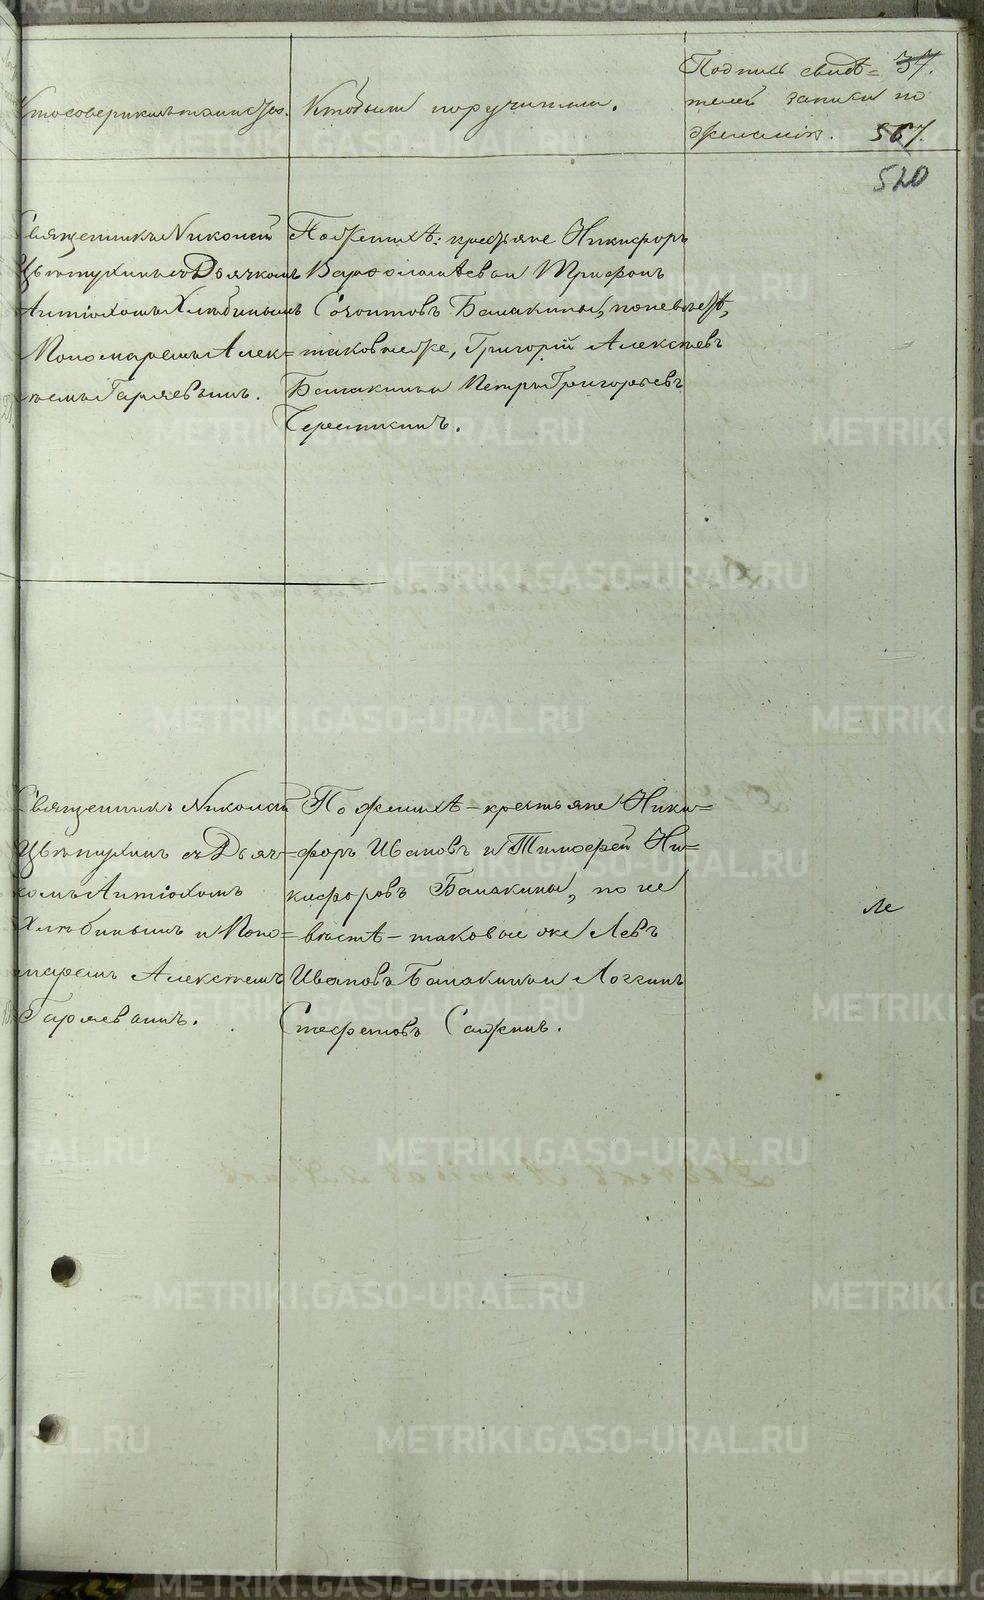 Кто совершилъ таинство.
Кто были поручители.
Подпись свидѣ=
телей записи по
желанію.
37.
567.
520
Священникъ Николай
Цвѣтухинъ съ Дьячкомъ
Антіохомъ Хлѣбинымъ
Пономаремъ Алек=
сѣемъ Гаряевымъ.
По женихѣ: крестьяне Никифоръ
Варѳоломѣевъ и Трифонъ
Созонтовъ Бамакины, по невѣстѣ,
таковыеже, Григорій Алексѣевъ
Бамакинъ и Петръ Григорьевъ
Черепикинъ.
Священникъ Николай
Цвѣтухинъ съ Дьяч=
комъ Антіохомъ
Хлѣбинымъ и Поно=
маремъ Алексѣемъ
Гаряевымъ.
По женихѣ – крестьяне Ники=
форъ Ивановъ и Тимофей Ни=
кифоровъ Бамакины, по не
вѣстѣ – таковые же Левъ
Ивановъ Бамакинъ и Логинъ
Стефановъ Сажинъ.
METRIKI.GASO-URAL.RU